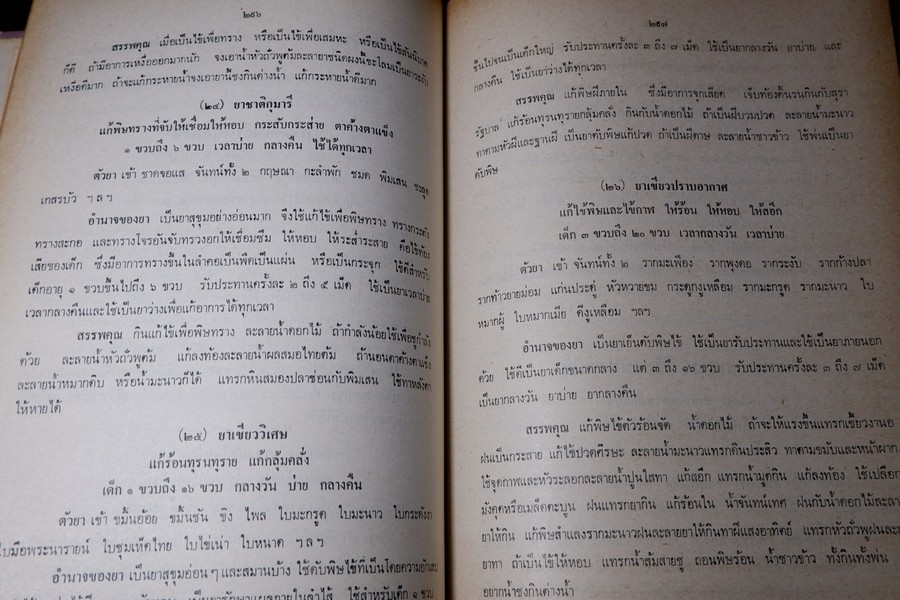 ๒๕๖
สรรพคุณ เมื่อเป็นไข้เพื่อทราง หรือเป็นไข้เพื่อเสมหะ หรือเป็นไข้สันนิบาต
ก็ดี ถ้ามีอาการเหงื่อออกมากนัก จงเอาน้ำหัวถั่วพูต้มละลายยาชนิดผงนี้ชะโลมเป็นยาระงับ
เหงื่อดีมาก ถ้าจะแก้กระหายน้ำจงเอายานี้ชงกินต่างน้ำ แก้กระหายน้ำดีมาก
(๒๔) ยาชาติกุมารี
แก้พิษทรางที่จับให้เชื่อมให้หอบ กระสับกระส่าย ตาค้างตาแข็ง
๑ ขวบถึง ๖ ขวบ เวลาบ่าย กลางคืน ใช้ได้ทุกเวลา
ตัวยา เข้า ชาดจอแส จันทน์ทั้ง ๒ กฤษณา กะลำพัก ชมด พิมเสน ชะลูด
เกสรบัว ฯลฯ
อำนาจของยา เป็นยาสุขุมอย่างอ่อนมาก จึงใช้แก้ไข้เพื่อพิษทราง ทรางกระตัง
ทรางสะกอ และทรางโจรอันจับทรวงอกให้เชื่อมซึม ให้หอบ ให้ระส่ำระสาย คือไข้ท้อง
เสียของเด็ก ซึ่งมีอาการทรางขึ้นในลำคอเป็นพืดเป็นแผ่น หรือเป็นกระจุก ใช้ดีสำหรับ
เด็กอายุ ๑ ขวบขึ้นไปถึง ๖ ขวบ รับประทานครั้งละ ๒ ถึง ๕ เม็ด ใช้เป็นยาเวลาบ่าย
เวลากลางคืนและใช้เป็นยาว่างเพื่อแก้อาการได้ทุกเวลา
สรรพคุณ กินแก้ไข้เพื่อพิษทราง ละลายน้ำดอกไม้ ถ้ากำลังน้อยใช้เพื่อชูกำลัง
ด้วย ละลายน้ำหัวถั่วพูต้ม แก้ลงท้องละลายน้ำผลสมอไทยต้ม ถ้านอนตาค้างตาแข็ง
ละลายน้ำหมากดิบ หรือน้ำมะนาวก็ได้ แทรกหินสมองปลาช่อนกับพิมเสน ใช้ทาหลังตา
ให้หายได้
(๒๕) ยาเขียววิเศษ
แก้ร้อนทุรนทุราย แก้กลุ้มคลั่ง
เด็ก ๑ ขวบถึง ๑๖ ขวบ กลางวัน บ่าย กลางคืน
ตัวยา เข้า ขมิ้นอ้อย ขมิ้นชัน ขิง ไพล ใบมะกรูด ใบมะนาว ใบกระดังงา
ใบมือพระนารายน์ ใบชุมเห็ดไทย ใบไข่เน่า ใบหนาด ฯลฯ
อำนาจของยา เป็นยาสุขุมอ่อน ๆ และสมานบ้าง ใช้ดับพิษไข้ที่เป็นโดยความอักเสบ
เป็นยารักษาแผลภายในลำไส้ ใช้สำหรับเด็ก ๑ ขวบ
๒๕๗
ขึ้นไปจนเป็นเด็กใหญ่ รับประทานครั้งละ ๓ ถึง ๗ เม็ด ใช้เป็นยากลางวัน ยาบ่าย และ
กลางคืน ใช้เป็นยาว่างได้ทุกเวลา
สรรพคุณ แก้พิษฝีภายใน ซึ่งมีอาการจุกเสียด เจ็บท้องดิ้นรนกินกับสุรา
รัฐบาล แก้ร้อนทุรนทุรายกลุ้มคลั่ง กินกับน้ำดอกไม้ ถ้าเป็นฝีบวมปวด ละลายน้ำมะนาว
ทาตามหัวฝีและฐานฝี เป็นยาดับพิษแก้ปวด ถ้าเป็นฝีดาษ ละลายน้ำซาวข้าว ใช้พ่นเป็นยา
ดับพิษ
(๒๖) ยาเขียวปราบอากาศ
แก้ไข้พิษและไข้กาฬ ให้ร้อน ให้หอบ ให้สอึก
เด็ก ๓ ขวบถึง ๒๐ ขวบ เวลากลางวัน เวลาบ่าย
ตัวยา เข้า จันทน์ทั้ง ๒ รากมะเฟือง รากพุงดอ รากระงับ รากก้างปลา
รากท้าวยายม่อม แก่นประดู่ หัวหวายขม กระดูกงูเหลือม รากมะกรูด รากมะนาว ใบ
หมากผู้ ใบหมากเมีย ดีงูเหลือม ฯลฯ
อำนาจของยา เป็นยาเย็นดับพิษไข้ ใช้เป็นยารับประทานและใช้เป็นยาภายนอก
ด้วย ใช้ดีเป็นยาเด็กขนาดกลาง แต่ ๓ ถึง ๑๖ ขวบ รับประทานครั้งละ ๓ ถึง ๗ เม็ด
เป็นยากลางวัน ยาบ่าย ยากลางคืน
สรรพคุณ แก้พิษไข้ตัวร้อนจัด น้ำดอกไม้ ถ้าจะให้แรงขึ้นแทรกเขี้ยวงาน
ฝนเป็นกระสาย แก้ไข้ปวดศีรษะ ละลายน้ำมะนาวแทรกดินประสิว ทาตามขมับและหน้าผาก
ใช้จุดกาฬและหัวระลอกละลายน้ำปูนใสทา แก้สอึก แทรกน้ำมูกกิน แก้ลงท้อง ใช้เปลือก
มังคุดหรือเมล็ดตะบูน ฝนแทรกยากิน แก้ร้อนใน น้ำจันทน์เทศ ฝนกับน้ำดอกไม้ละลา
ยาให้กิน แก้พิษสำแลงรากมะนาวฝนละลายยาให้กินทาฝีแสงอาทิตย์ แทรกหัวถั่วพูฝนละ
ยาทา ถ้าเป็นไข้ให้หอบ แทรกน้ำส้มสายชู ถอนพิษร้อน น้ำซาวข้าว ทั้งกินทั้งพ่น
อยากน้ำชงกินต่างน้ำ